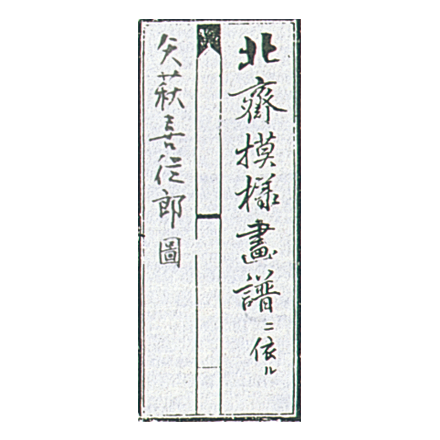 北齋摸様畫譜ニ依ル
矢萩喜從郎圖